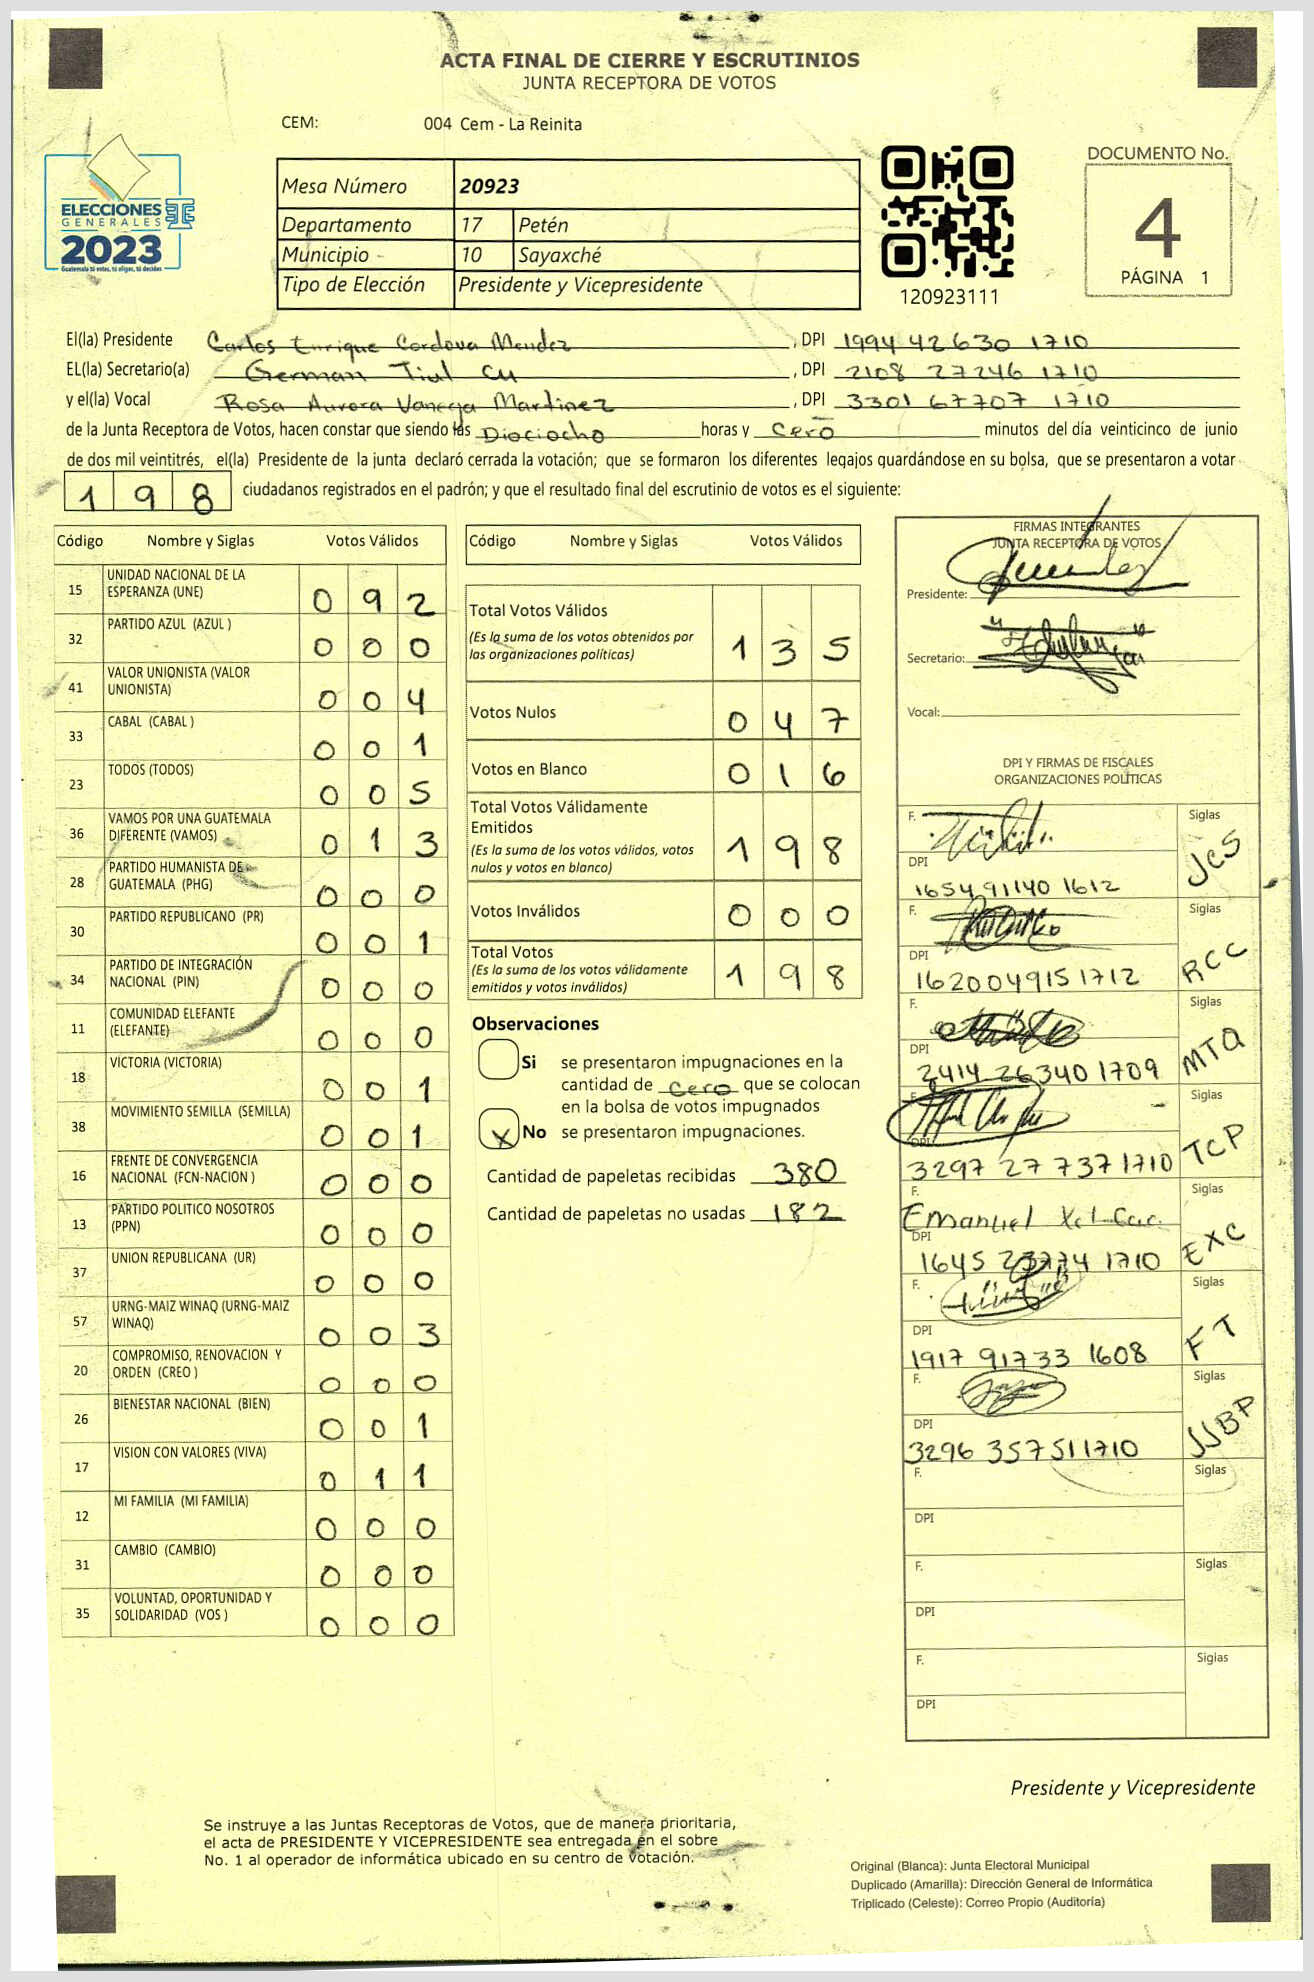 ACTA FINAL DE CIERRE Y ESCRUTINIOS
JUNTA RECEPTORA DE VOTOS
CEM: 004 Cem - La Reinita
ELECCIONES
GENERALES
2023
Guatemala tú votas, tú eliges, tú decides
Mesa Número 20923
Departamento 17 Petén
Municipio 10 Sayaxché
Tipo de Elección Presidente y Vicepresidente
120923111
DOCUMENTO No.
4
PÁGINA 1
El(la) Presidente Carlos Enrique Cordova Mendez, DPI 1994 42630 1710
EL(la) Secretario(a) German Tiul Cu, DPI 2108 27246 1710
y el(la) Vocal Rosa Aurora Vanega Martinez, DPI 3301 67707 1710
de la Junta Receptora de Votos, hacen constar que siendo las Diociocho horas y cero minutos del día veinticinco de junio
de dos mil veintitrés, el(la) Presidente de la junta declaró cerrada la votación; que se formaron los diferentes legajos guardándose en su bolsa, que se presentaron a votar
198 ciudadanos registrados en el padrón; y que el resultado final del escrutinio de votos es el siguiente:
Código Nombre y Siglas Votos Válidos
15 UNIDAD NACIONAL DE LA ESPERANZA (UNE) 092
32 PARTIDO AZUL (AZUL ) 000
41 VALOR UNIONISTA (VALOR UNIONISTA) 004
33 CABAL (CABAL ) 001
23 TODOS (TODOS) 005
36 VAMOS POR UNA GUATEMALA DIFERENTE (VAMOS) 013
28 PARTIDO HUMANISTA DE GUATEMALA (PHG) 000
30 PARTIDO REPUBLICANO (PR) 001
34 PARTIDO DE INTEGRACIÓN NACIONAL (PIN) 000
11 COMUNIDAD ELEFANTE (ELEFANTE) 000
18 VICTORIA (VICTORIA) 001
38 MOVIMIENTO SEMILLA (SEMILLA) 001
16 FRENTE DE CONVERGENCIA NACIONAL (FCN-NACION ) 000
13 PARTIDO POLITICO NOSOTROS (PPN) 000
37 UNION REPUBLICANA (UR) 000
57 URNG-MAIZ WINAQ (URNG-MAIZ WINAQ) 003
20 COMPROMISO, RENOVACION Y ORDEN (CREO ) 000
26 BIENESTAR NACIONAL (BIEN) 001
17 VISION CON VALORES (VIVA) 011
12 MI FAMILIA (MI FAMILIA) 000
31 CAMBIO (CAMBIO) 000
35 VOLUNTAD, OPORTUNIDAD Y SOLIDARIDAD (VOS ) 000
Código Nombre y Siglas Votos Válidos
Total Votos Válidos 135
(Es la suma de los votos obtenidos por
las organizaciones políticas)
Votos Nulos 047
Votos en Blanco 016
Total Votos Válidamente
Emitidos 198
(Es la suma de los votos válidos, votos
nulos y votos en blanco)
Votos Inválidos 000
Total Votos 198
(Es la suma de los votos válidamente
emitidos y votos inválidos)
Observaciones
Si se presentaron impugnaciones en la
cantidad de cero que se colocan
en la bolsa de votos impugnados
X No se presentaron impugnaciones.
Cantidad de papeletas recibidas 380
Cantidad de papeletas no usadas 182
FIRMAS INTEGRANTES
JUNTA RECEPTORA DE VOTOS
Presidente:
Secretario:
Vocal:
DPI Y FIRMAS DE FISCALES
ORGANIZACIONES POLÍTICAS
F. Siglas JCS
DPI 1654 91140 1612
F. Siglas RCC
DPI 1620049151712
F. Siglas MTQ
DPI 2414 26340 1709
F. Siglas TCP
DPI 3297 27 737 1710
F. Emanuel Siglas EXC
DPI 1645 1710
F. Siglas FT
DPI 1917 91733 1608
F. Siglas JJBP
DPI 3296 357511710
F. Siglas
DPI
F. Siglas
DPI
F. Siglas
DPI
Presidente y Vicepresidente
Se instruye a las Juntas Receptoras de Votos, que de manera prioritaria,
el acta de PRESIDENTE Y VICEPRESIDENTE sea entregada en el sobre
No. 1 al operador de informática ubicado en su centro de votación.
Original (Blanca): Junta Electoral Municipal
Duplicado (Amarilla): Dirección General de Informática
Triplicado (Celeste): Correo Propio (Auditoría)